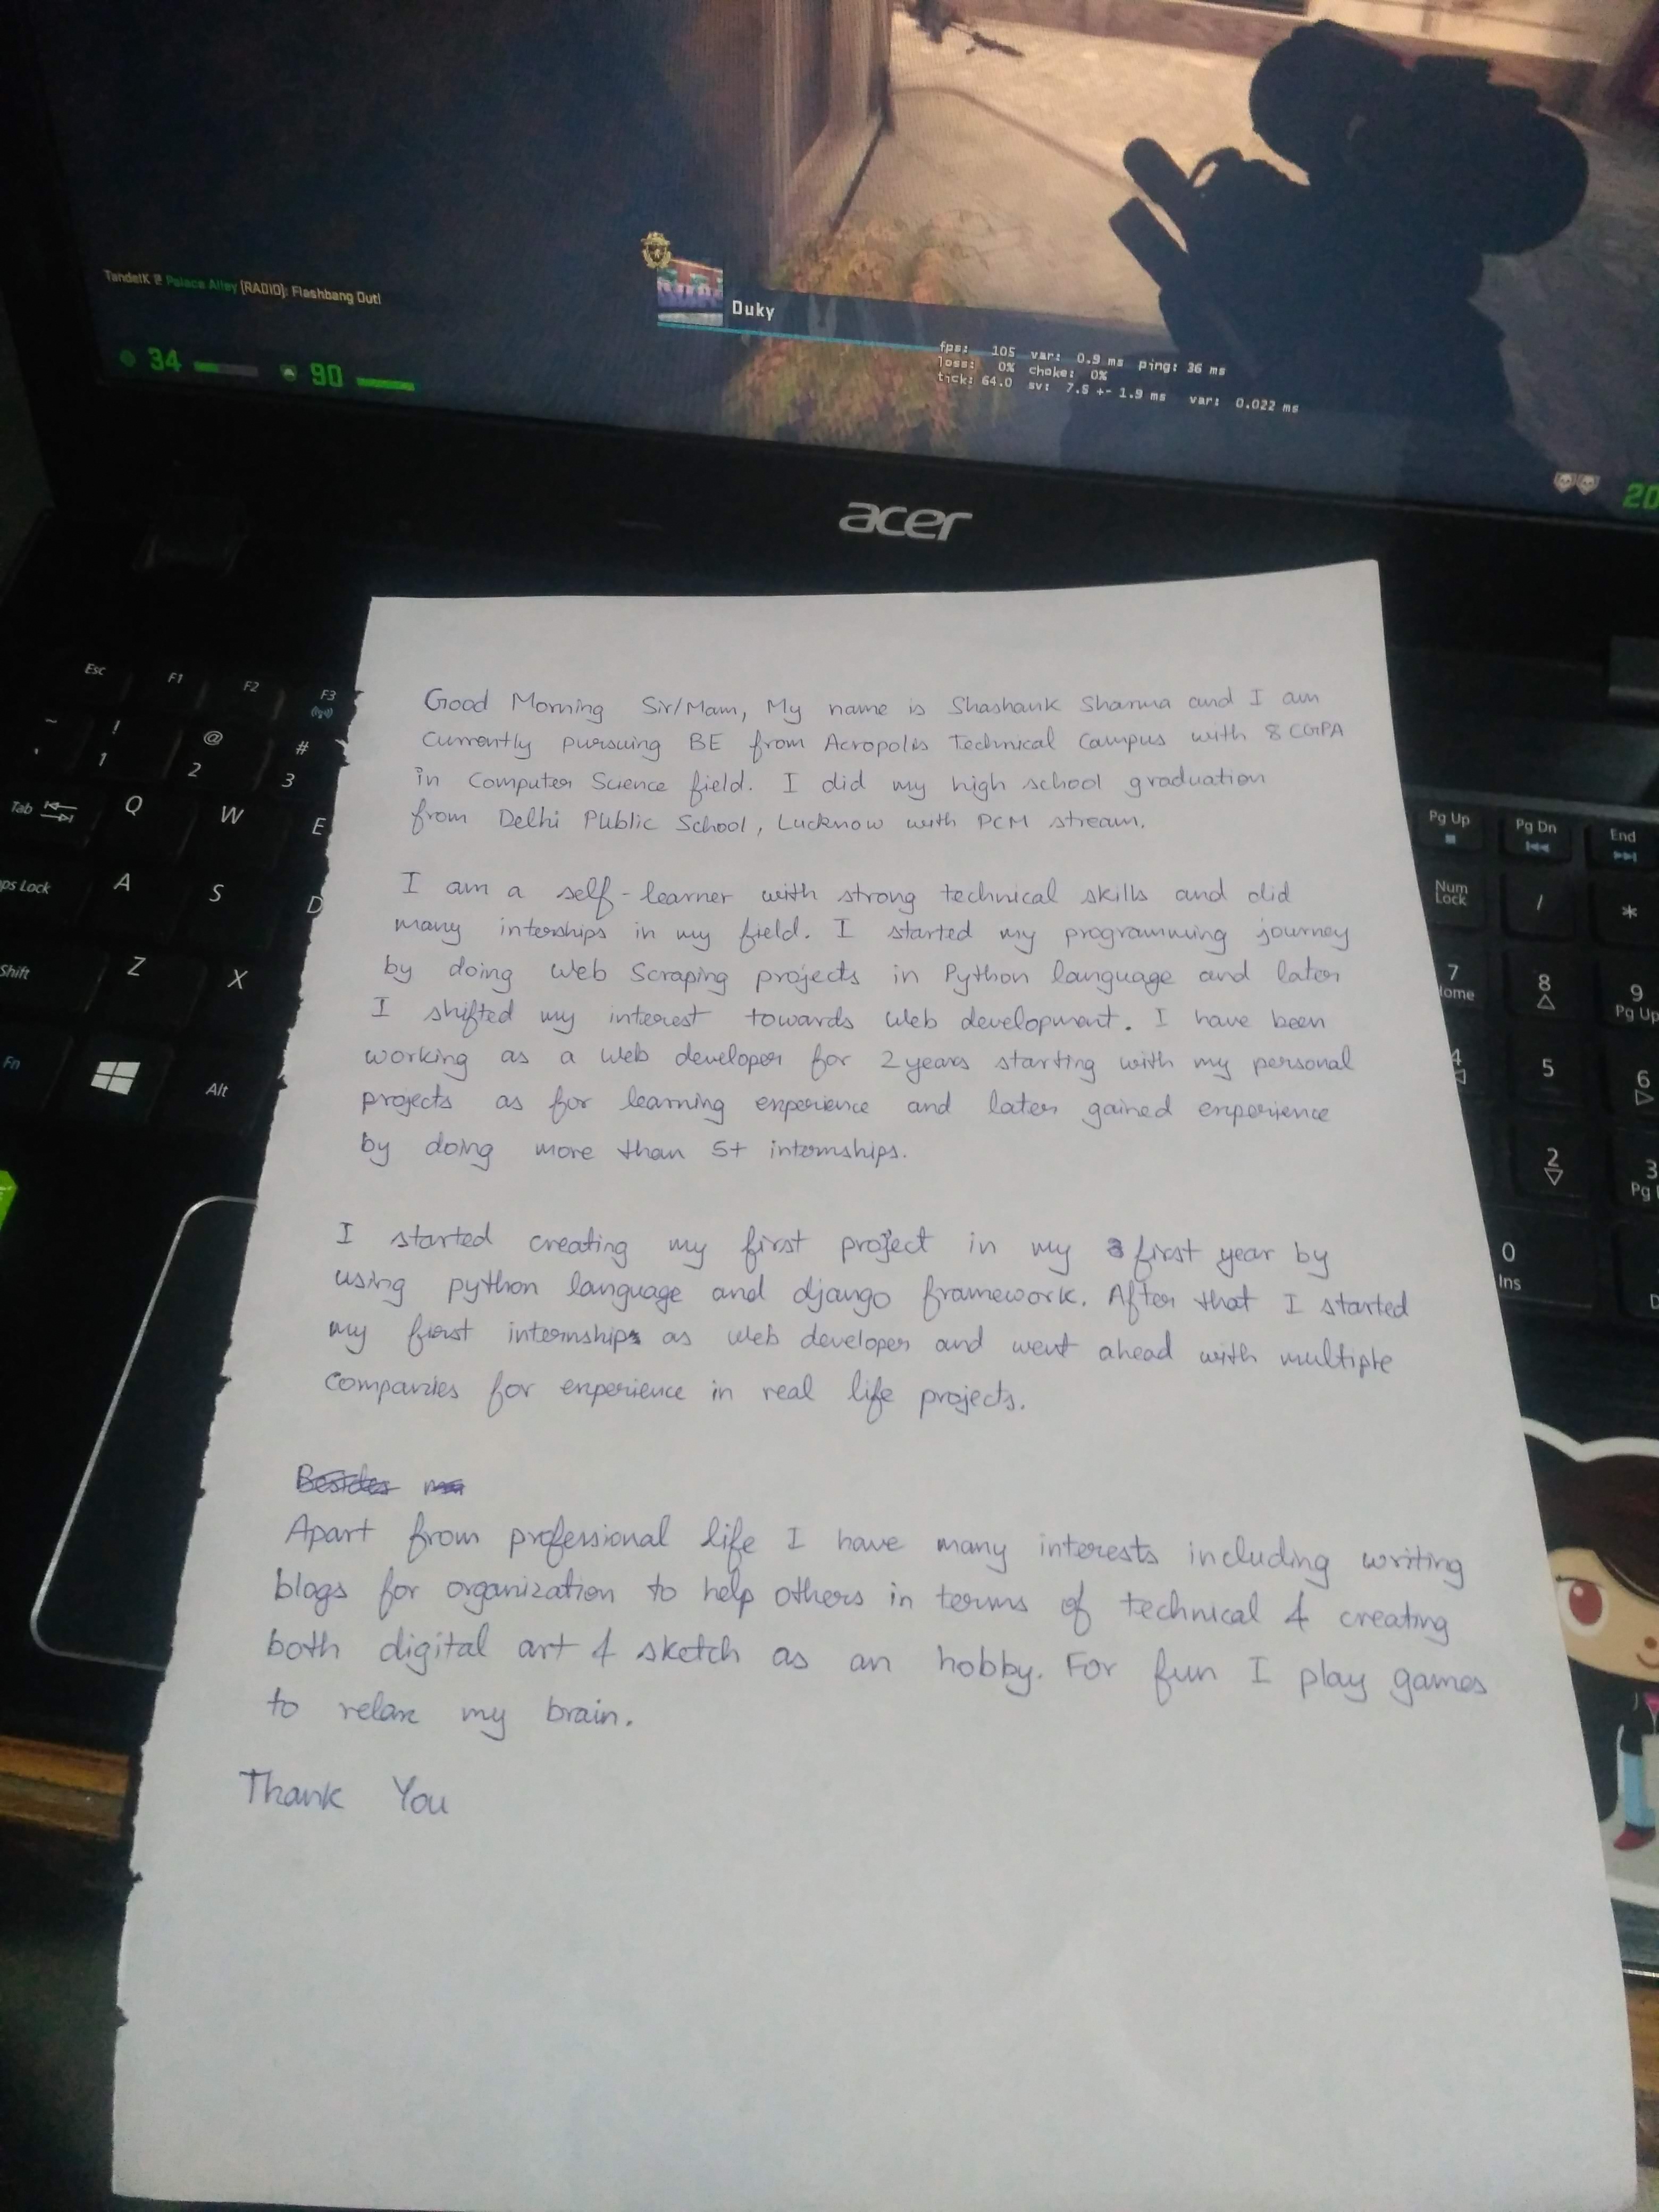 TandelK @ Palace Alley (RADIO): Flashbang Out!
34 90
Duky
fps: 105 var: 0.9 ms ping: 36 ms
loss: 0% choke: 0%
tick: 64.0 sv: 7.5 +- 1.9 ms var: 0.022 ms
20
acer
Good Morning Sir/Mam, My name is Shashank Sharma and I am
currently pursuing BE from Acropolis Technical Campus with 8 CGPA
in Computer Science field. I did my high school graduation
from Delhi Public School, Lucknow with PCM stream.
I am a self-learner with strong technical skills and did
many interships in my field. I started my programming journey
by doing Web Scraping projects in Python language and later
I shifted my interest towards Web development. I have been
working as a Web developer for 2 years starting with my personal
projects as for learning experience and later gained experience
by doing more than 5+ internships.
I started creating my first project in my first year by
using python language and django framework. After that I started
my first internships as Web developer and went ahead with multiple
companies for experience in real life projects.
Besides
Apart from professional life I have many interests including writing
blogs for organization to help others in terms of technical & creating
both digital art & sketch as an hobby. For fun I play games
to relax my brain.
Thank You
Esc F1 F2 F3
~ ! @ #
` 1 2 3
Tab Q W E
ps Lock A S D
Shift Z X
Fn Alt
Pg Up Pg Dn End
Num Lock / *
7 8 9
ome Pg Up
4 5 6
2 3
Pg
0
Ins